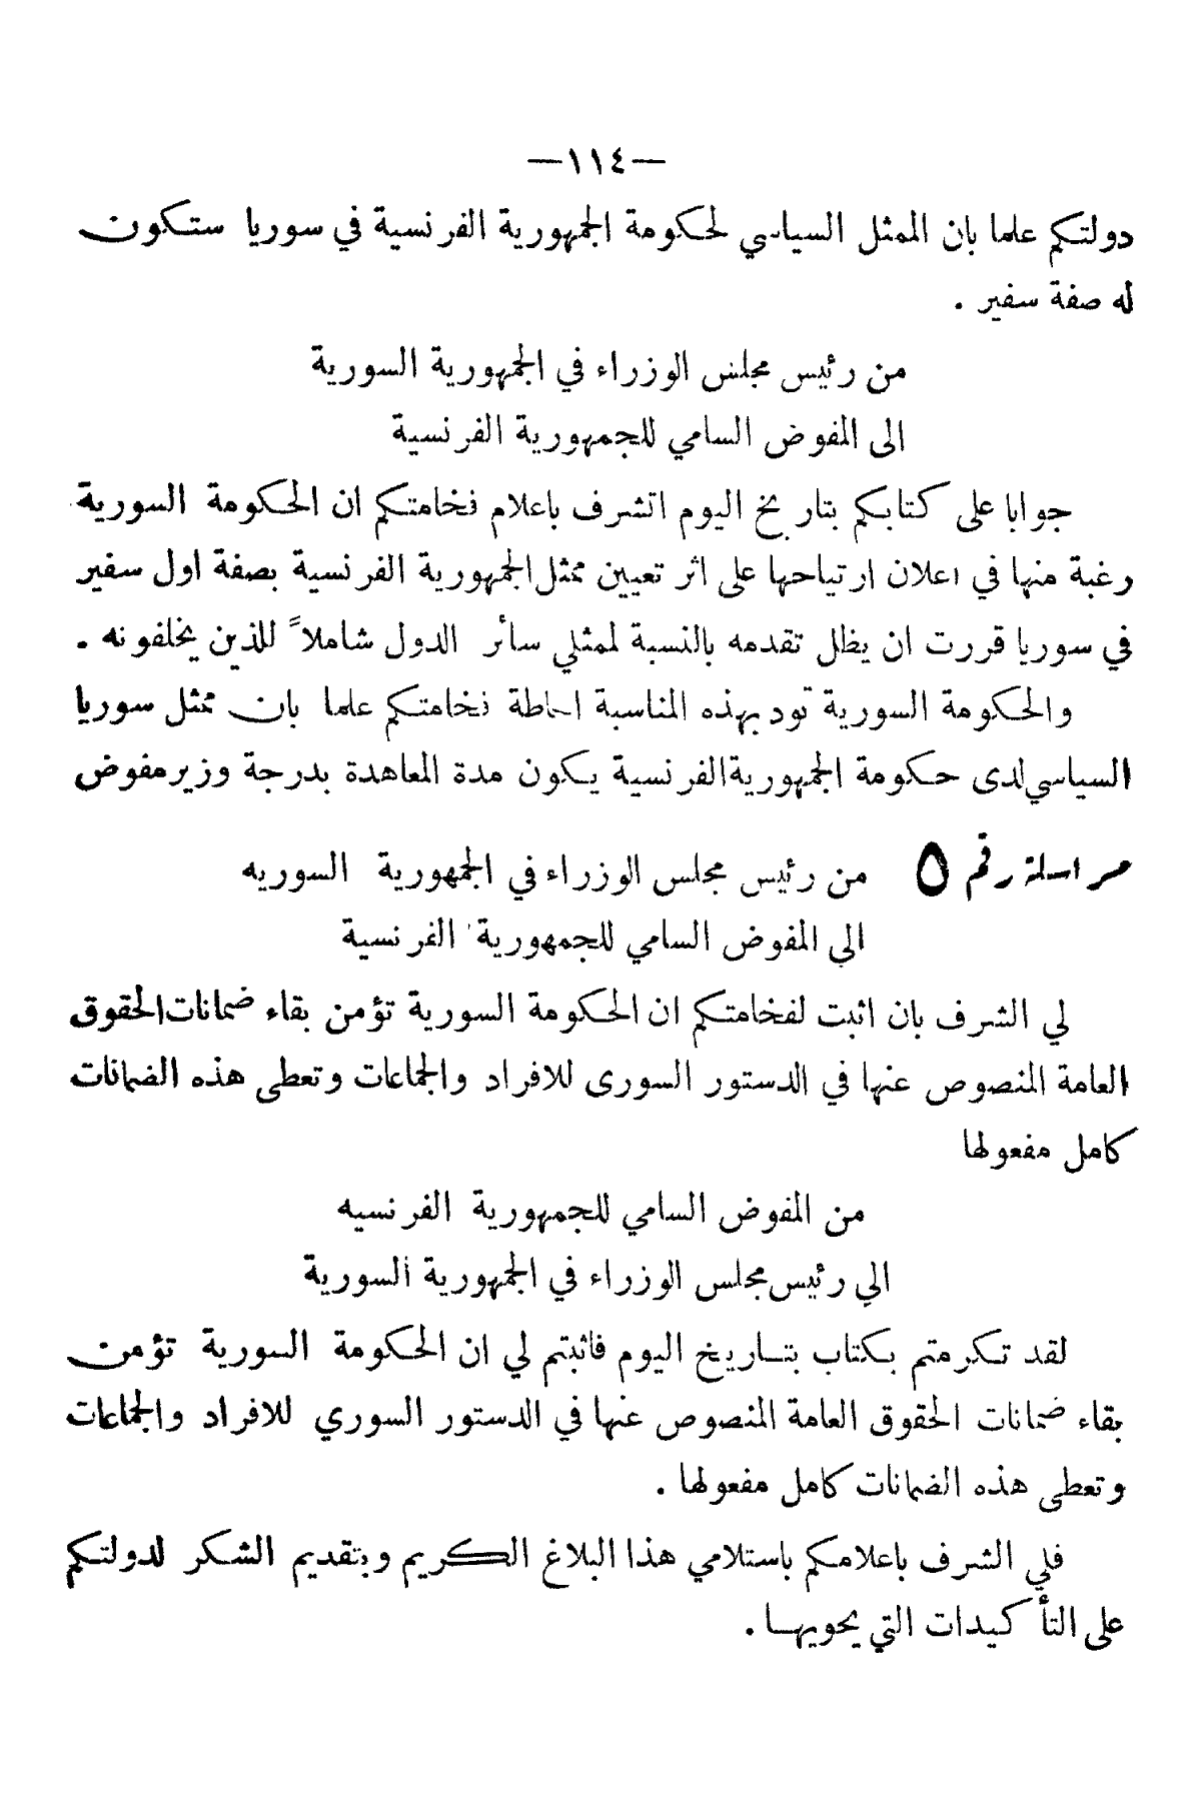 —١١٤—
دولتكم علما بان الممثل السياسي لحكومة الجمهورية الفرنسية في سوريا ستكون
له صفة سفير .
من رئيس مجلس الوزراء في الجمهورية السورية
الى المفوض السامي للجمهورية الفرنسية
جوابا على كتابكم بتاريخ اليوم اتشرف باعلام فخامتكم ان الحكومة السورية
رغبة منها في اعلان ارتياحها على اثر تعيين ممثل الجمهورية الفرنسية بصفة اول سفير
في سوريا قررت ان يظل تقدمه بالنسبة لممثلي سائر الدول شاملاً للذين يخلفونه .
والحكومة السورية تود بهذه المناسبة احاطة فخامتكم علما بان ممثل سوريا
السياسي لدى حكومة الجمهورية الفرنسية يكون مدة المعاهدة بدرجة وزير مفوض
مراسلة رقم ٥ من رئيس مجلس الوزراء في الجمهورية السوريه
الي المفوض السامي للجمهورية الفرنسية
لي الشرف بان اثبت لفخامتكم ان الحكومة السورية تؤمن بقاء ضمانات الحقوق
العامة المنصوص عنها في الدستور السورى للافراد والجماعات وتعطى هذه الضمانات
كامل مفعولها
من المفوض السامي للجمهورية الفرنسيه
الي رئيس مجلس الوزراء في الجمهورية السورية
لقد تكرمتم بكتاب بتاريخ اليوم فاثبتم لي ان الحكومة السورية تؤمن
بقاء ضمانات الحقوق العامة المنصوص عنها في الدستور السوري للافراد والجماعات
وتعطى هذه الضمانات كامل مفعولها .
فلي الشرف باعلامكم باستلامي هذا البلاغ الكريم وبتقديم الشكر لدولتكم
على التأكيدات التي يحويها .